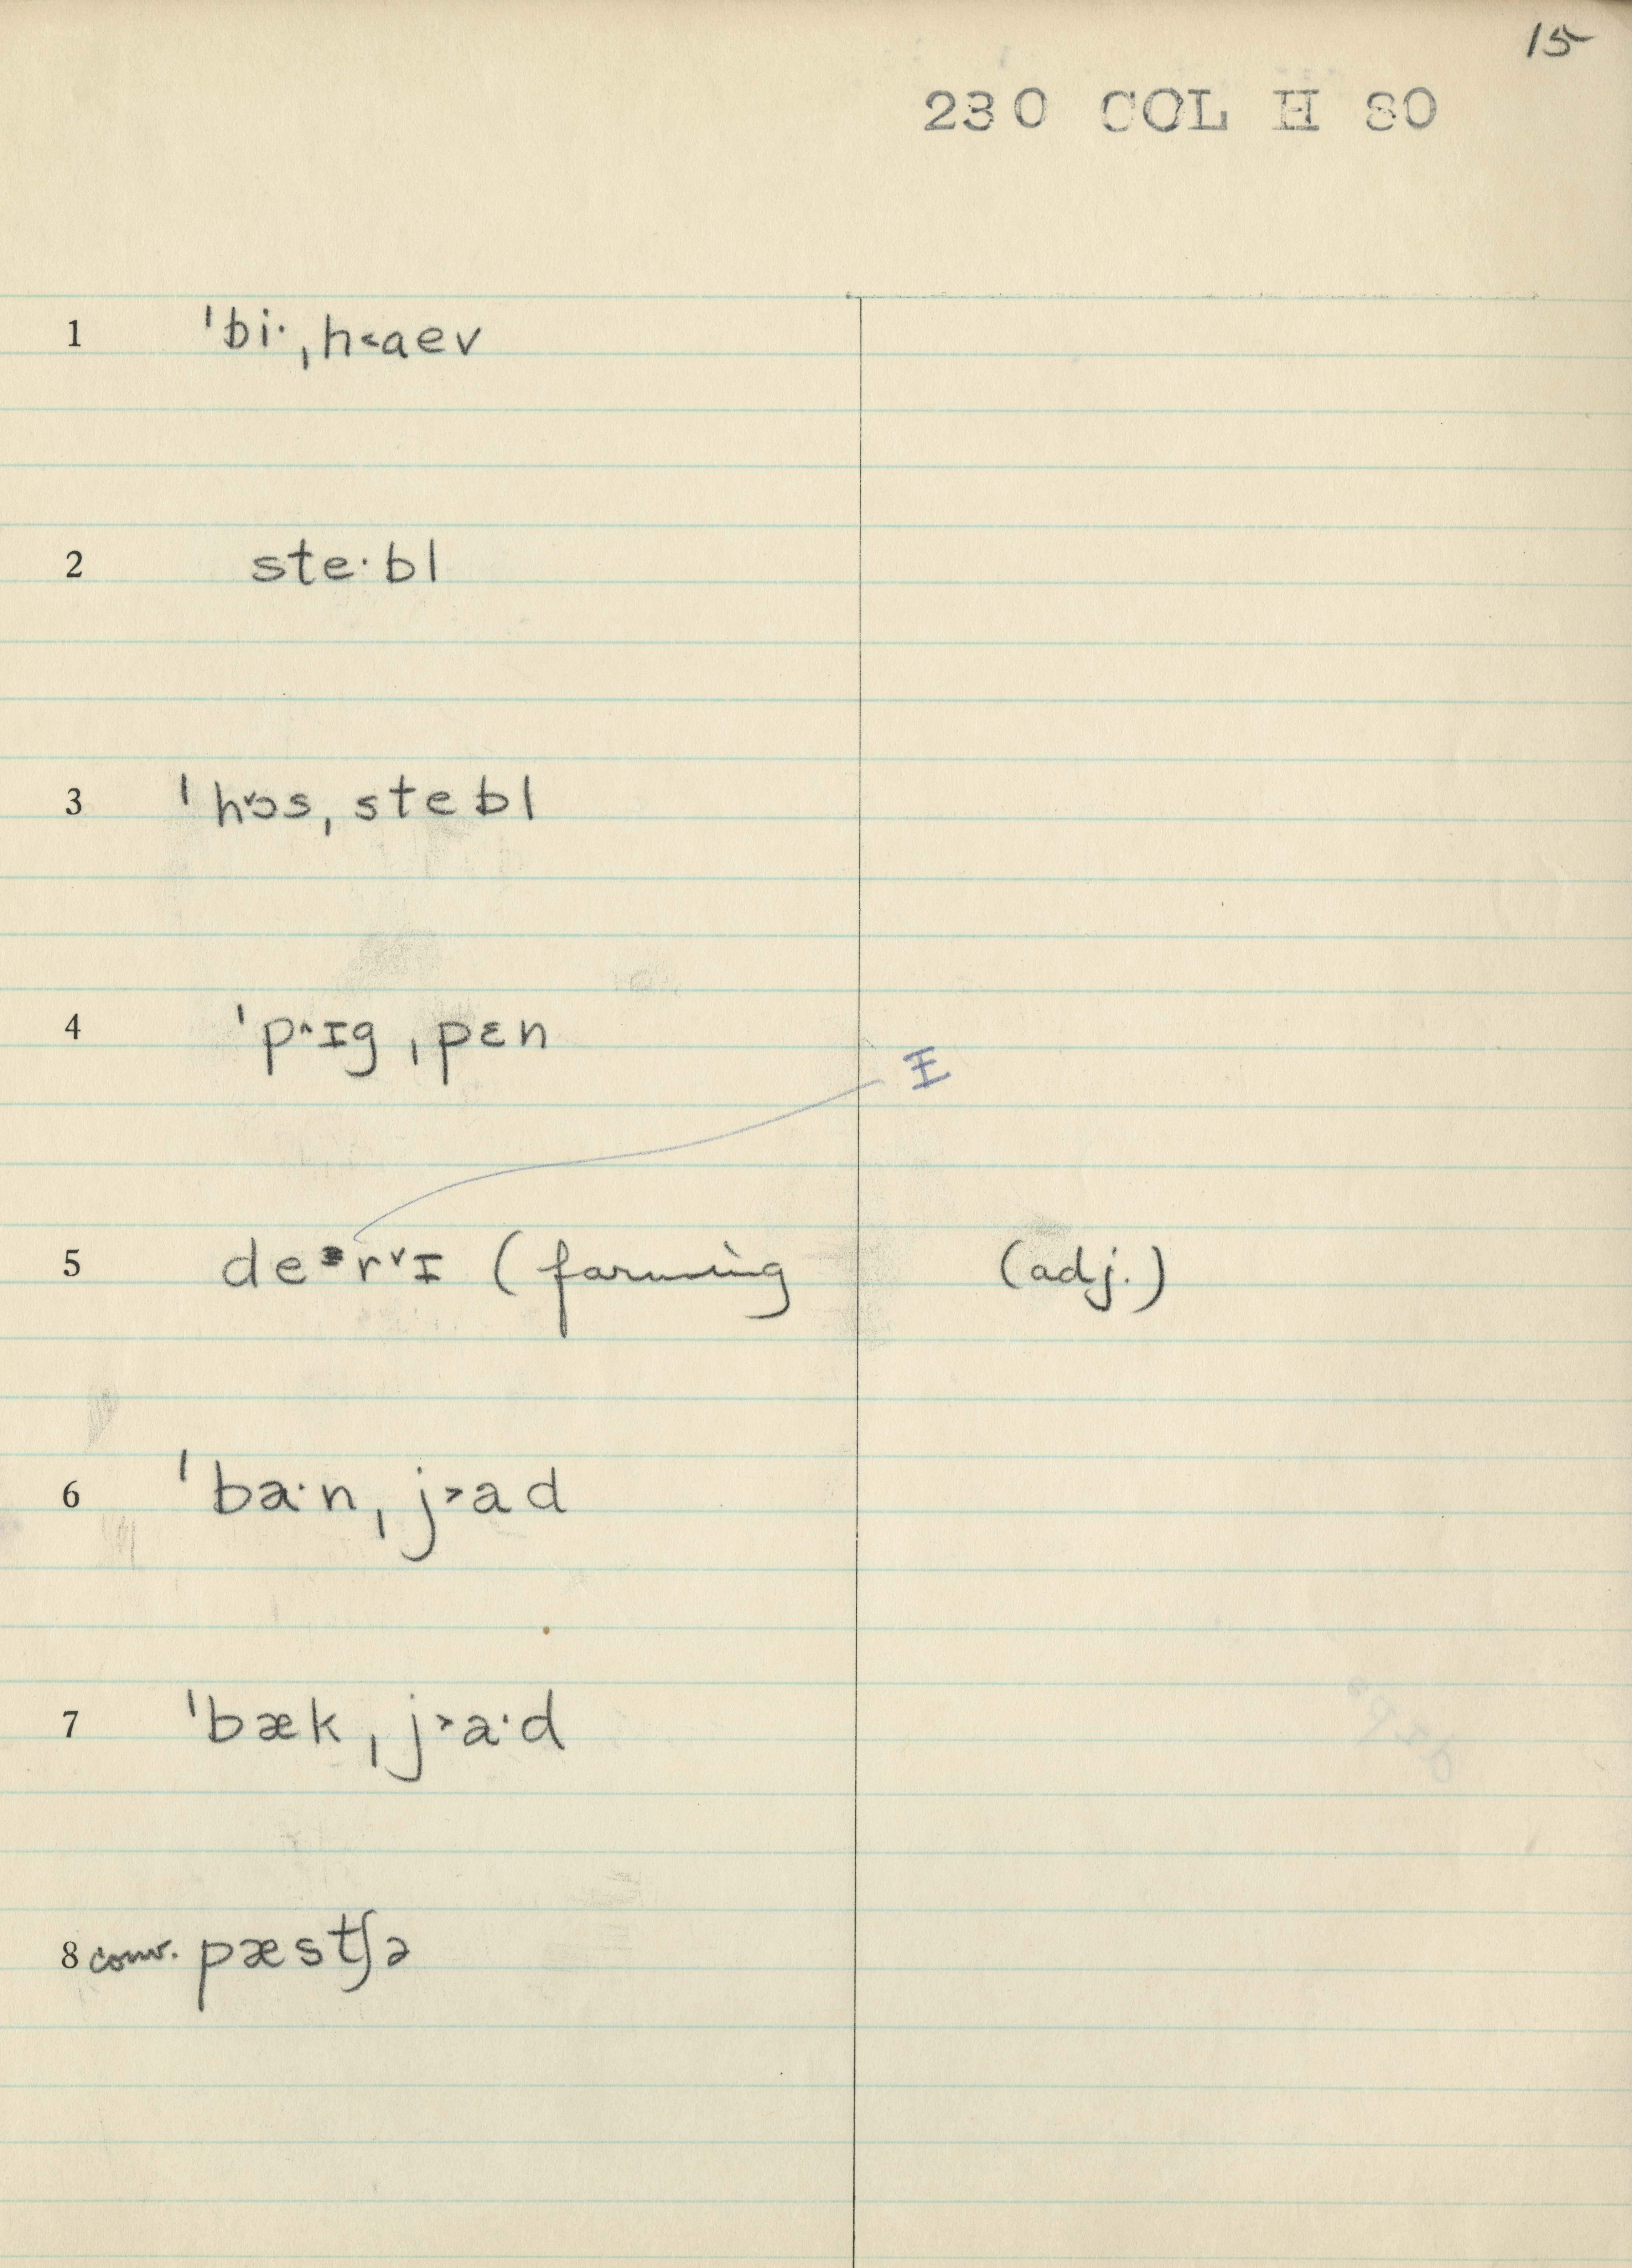 15
230 COL H 80
1 ˈbi· ˌh˂aev
2 ste·bl
3 ˈhˇɔs ˌstebl
4 ˈp˄ɪg ˌpɛn
ɪ
5 derˇɪ (farming (adj.)
6 ˈba·n ˌj˃ad
7 ˈbæk ˌj˃a·d
8 conv. pæstʃə